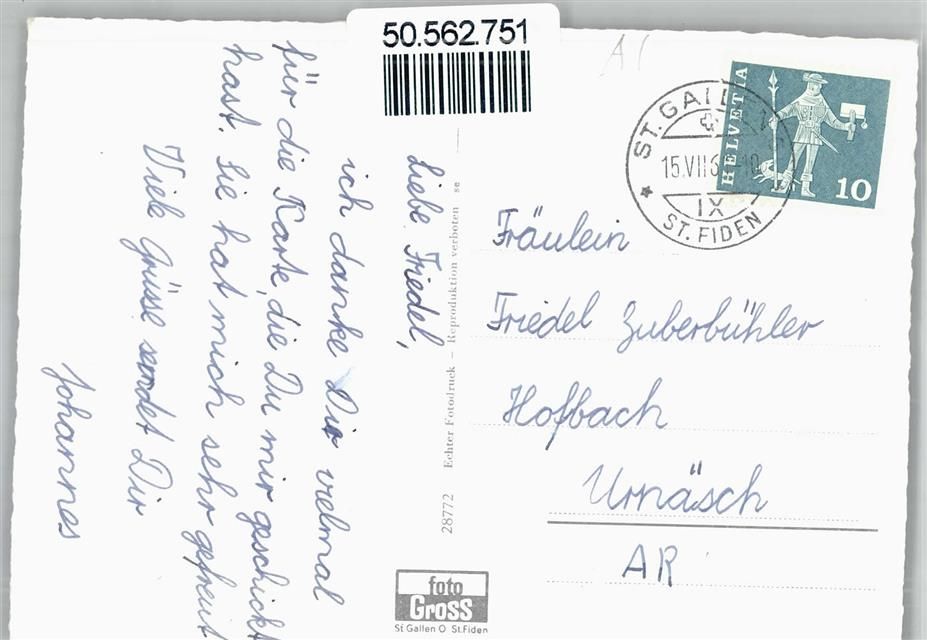 50.562.751
A (
Liebe Friedel,
ich danke Dir vielmal
für die Karte, die Du mir geschickt
hast. Sie hat mich sehr gefreut
Viele Grüsse sendet Dir
Johannes
28772 Echter Fotodruck – Reproduktion verboten se
foto
Gross
St. Gallen O St. Fiden
ST. GALLEN
15.VII.6 -10
IX
ST. FIDEN
HELVETIA
10
Fräulein
Friedel Zuberbühler
Hofbach
Urnäsch
AR